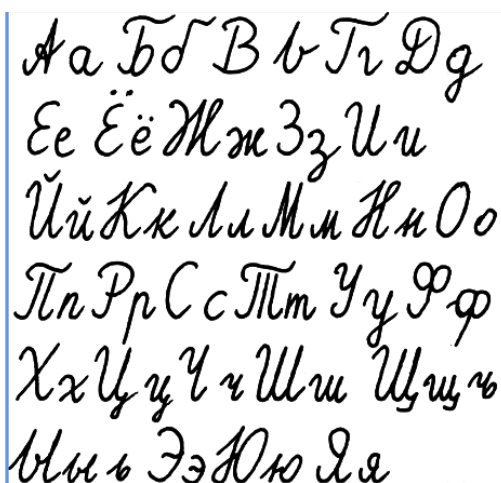 Аа Бб Вв Гг Дд
Ее Ёё Жж Зз Ии
Йй Кк Лл Мм Нн Оо
Пп Рр Сс Тт Уу Фф
Хх Цц Чч Шш Щщ ъ
Ыы ь Ээ Юю Яя